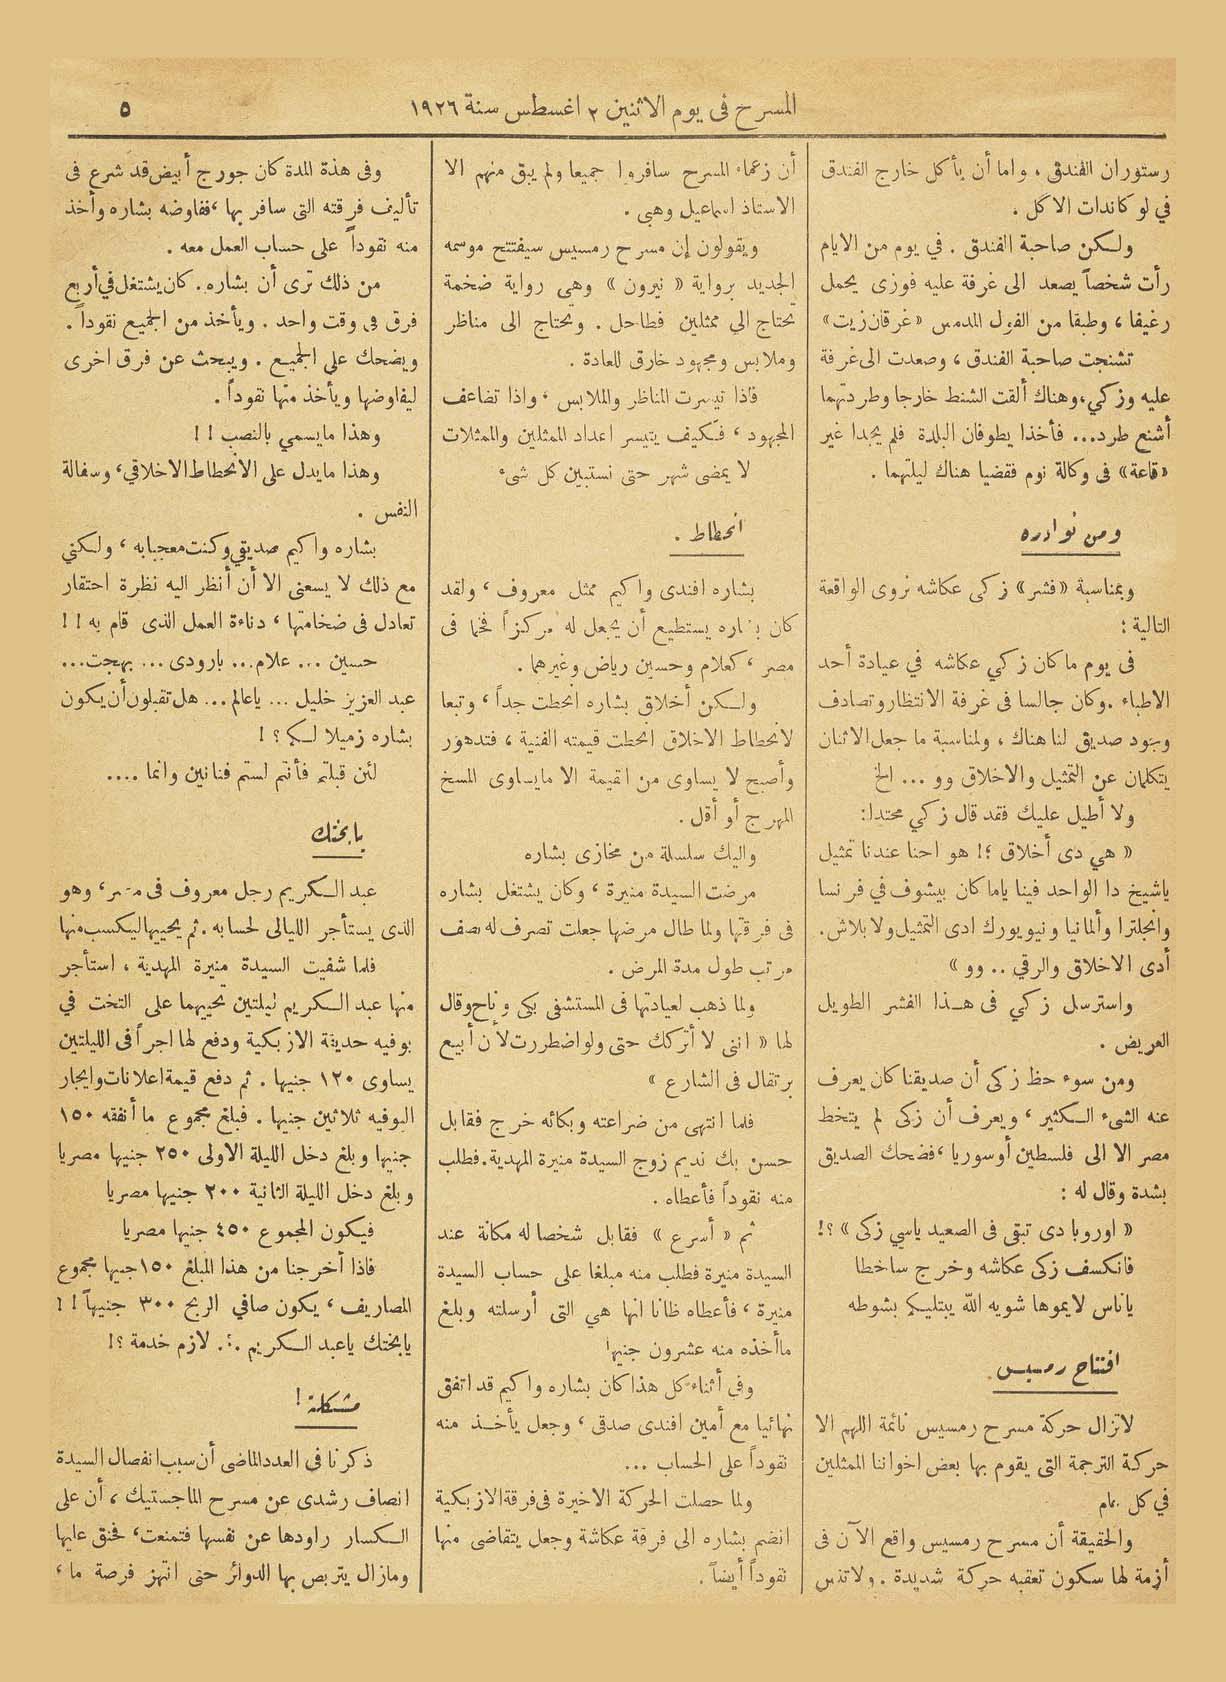 المسرح فى يوم الاثنين ٢ اغسطس سنة ١٩٢٦
٥
رستوران الفندق ، واما أن يأكل خارج الفندق
في لوكاندات الاكل .
ولكن صاحبة الفندق . في يوم من الايام
رأت شخصاً يصعد الى غرفة عليه فوزى يحمل
رغيفا ، وطبقا من الفول المدمس «غرقان زيت»
تشنجت صاحبة الفندق ، وصعدت الى غرفة
عليه وزكي، وهناك ألقت الشنط خارجا وطردتهما
أشنع طرد... فأخذا يطوفان البلدة فلم يجدا غير
«قاعة» فى وكالة نوم فقضيا هناك ليلتهما .
ومن نوادره
وبمناسبة «فشر» زكى عكاشه نروى الواقعة
التالية :
فى يوم ما كان زكي عكاشه في عيادة أحد
الاطباء . وكان جالسا فى غرفة الانتظار وتصادف
وجود صديق لنا هناك ، ولمناسبة ما جعل الاثنان
يتكلمان عن التمثيل والاخلاق وو ... الخ
ولا أطيل عليك فقد قال زكي محتدا:
« هي دى أخلاق ؟! هو احنا عندنا تمثيل
ياشيخ دا الواحد فينا ياما كان بيشوف في فرنسا
وانجلترا وألمانيا ونيويورك ادى التمثيل ولا بلاش.
أدى الاخلاق والرقي .. وو »
واسترسل زكي فى هذا الفشر الطويل
العريض .
ومن سوء حظ زكى أن صديقنا كان يعرف
عنه الشىء الكثير ، ويعرف أن زكى لم يتخط
مصر الا الى فلسطين أو سوريا ، فضحك الصديق
بشدة وقال له :
« اوروبا دى تبقى فى الصعيد ياسي زكى » ؟!
فانكسف زكى عكاشه وخرج ساخطا
ياناس لايموها شويه الله يبتليكم بشوطه
افتتاح رمسيس
لاتزال حركة مسرح رمسيس نائمة اللهم الا
حركة الترجمة التى يقوم بها بعض اخواننا الممثلين
في كل عام
والحقيقة أن مسرح رمسيس واقع الآن فى
أزمة لها سكون تعقبه حركة شديدة . ولاتنس
أن زعماء المسرح سافروا جميعا ولم يبق منهم الا
الاستاذ اسماعيل وهبي .
ويقولون إن مسرح رمسيس سيفتتح موسمه
الجديد برواية « نيرون » وهي رواية ضخمة
تحتاج الي ممثلين فطاحل . وتحتاج الى مناظر
وملابس ومجهود خارق للعادة .
فاذا تيسرت المناظر والملابس ، واذا تضاعف
المجهود ، فكيف يتيسر اعداد الممثلين والممثلات
لا يمضى شهر حتى نستبين كل شىء
انحطاط .
بشاره افندى واكيم ممثل معروف ، ولقد
كان بشاره يستطيع أن يجعل له مركزاً فخما فى
مصر ، كعلام وحسين رياض وغيرهما .
ولكن أخلاق بشاره انحطت جداً ، وتبعا
لانحطاط الاخلاق انحطت قيمته الفنية ، فتدهور
وأصبح لا يساوى من القيمة الا مايساوى المسخ
المهرج أو أقل .
واليك سلسلة من مخازى بشاره
مرضت السيدة منيرة ، وكان يشتغل بشاره
فى فرقتها ولما طال مرضها جعلت تصرف له نصف
مرتب طول مدة المرض .
ولما ذهب لعيادتها فى المستشفى بكى وناح وقال
لها « اننى لا أتركك حتى ولو اضطررت لأن أبيع
برتقال فى الشارع »
فلما انتهى من ضراعته وبكائه خرج فقابل
حسن بك نديم زوج السيدة منيرة المهدية . فطلب
منه نقوداً فأعطاه .
ثم « أسرع » فقابل شخصا له مكانة عند
السيدة منيرة فطلب منه مبلغا على حساب السيدة
منيرة ، فأعطاه ظانا انها هي التى أرسلته وبلغ
ماأخذه منه عشرون جنيها
وفى أثناء كل هذا كان بشاره واكيم قد اتفق
نهائيا مع أمين افندى صدقى ، وجعل يأخذ منه
نقوداً على الحساب ...
ولما حصلت الحركة الاخيرة فى فرقة الازبكية
انضم بشاره الى فرقة عكاشة وجعل يتقاضى منها
نقوداً أيضاً .
وفى هذة المدة كان جورج أبيض قد شرع فى
تأليف فرقته التى سافر بها ، ففاوضه بشاره وأخذ
منه نقوداً على حساب العمل معه .
من ذلك ترى أن بشاره . كان يشتغل في أربع
فرق فى وقت واحد . ويأخذ من الجميع نقوداً .
ويضحك على الجميع . ويبحث عن فرق اخرى
ليفاوضها ويأخذ منها نقوداً .
وهذا مايسمي بالنصب ! !
وهذا مايدل على الانحطاط الاخلاقي ، وسفالة
النفس .
بشاره واكيم صديقي وكنت معجبا به ، ولكني
مع ذلك لا يسعنى الا أن أنظر اليه نظرة احتقار
تعادل فى ضخامتها ، دناءة العمل الذى قام به ! !
حسين ... علام... بارودى... بهجت...
عبد العزيز خليل ... ياعالم... هل تقبلون أن يكون
بشاره زميلا لكم ؟ !
لئن قبلتم فأنتم لستم فنانين وانما ....
يابختك
عبد الكريم رجل معروف فى مصر ، وهو
الذى يستأجر الليالى لحسابه . ثم يحييها ليكسب منها
فلما شفيت السيدة منيرة المهدية ، استأجر
منها عبد الكريم ليلتين تحييهما على التخت في
بوفيه حديقة الازبكية ودفع لها اجراً فى الليلتين
يساوى ١٢٠ جنيها . ثم دفع قيمة اعلانات وايجار
البوفيه ثلاثين جنيها . فبلغ مجموع ما أنفقه ١٥٠
جنيها وبلغ دخل الليلة الاولى ٢٥٠ جنيها مصريا
وبلغ دخل الليلة الثانية ٢٠٠ جنيها مصريا
فيكون المجموع ٤٥٠ جنيها مصريا
فاذا أخرجنا من هذا المبلغ ١٥٠ جنيها مجموع
المصاريف ، يكون صافي الربح ٣٠٠ جنيهاً ! !
يابختك ياعبد الكريم .؟. لازم خدمة ؟!
مشكلة !
ذكرنا فى العدد الماضى أن سبب انفصال السيدة
انصاف رشدى عن مسرح الماجستيك ، أن على
الكسار راودها عن نفسها فتمنعت ، فحنق عليها
ومازال يتربص بها الدوائر حتى انتهز فرصة ما ،